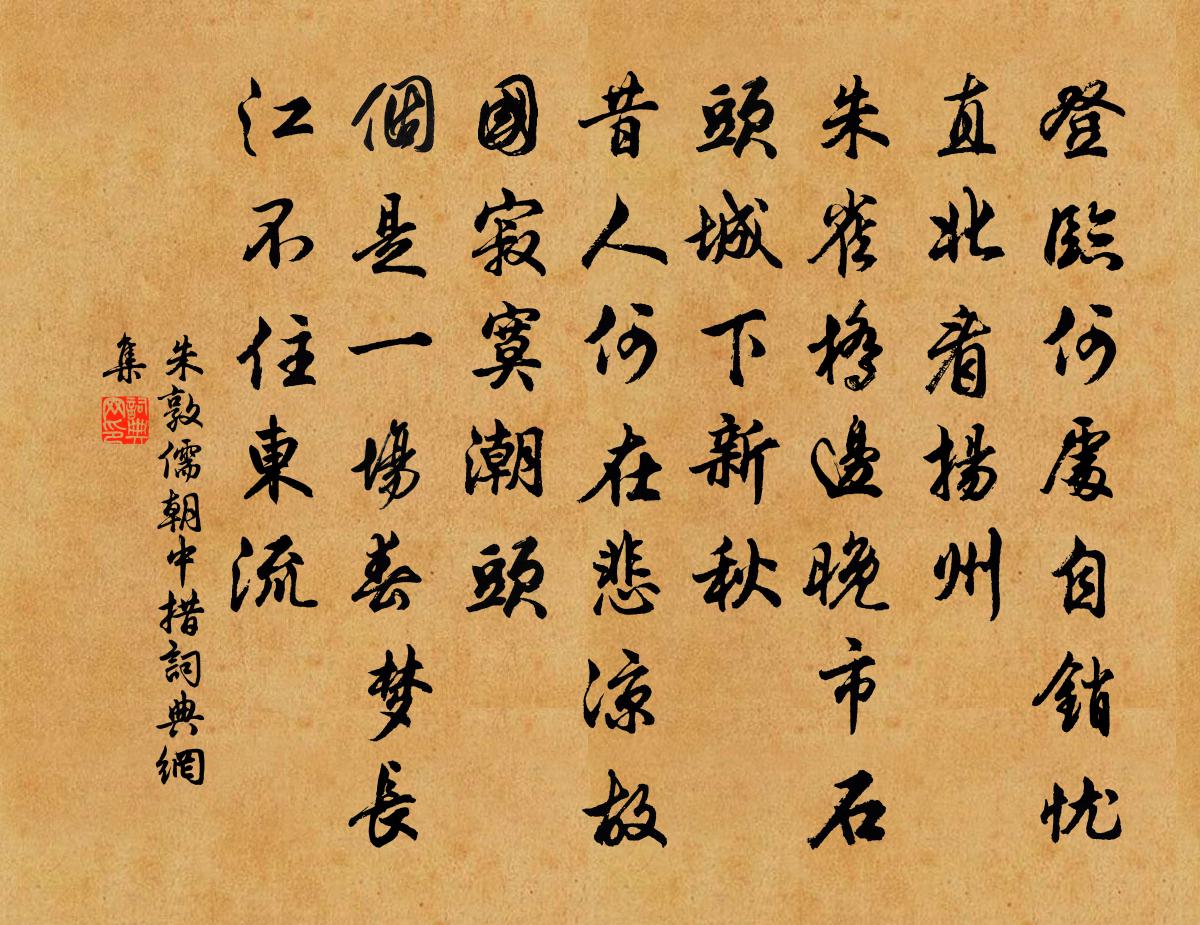 登臨何處自銷忧
直北看揚州
朱雀橋邊晚市石
頭城下新秋
昔人何在悲涼故
國寂寞潮頭
個是一場春梦長
江不住東流
朱敦儒朝中措詞典網
集
詞典
网印